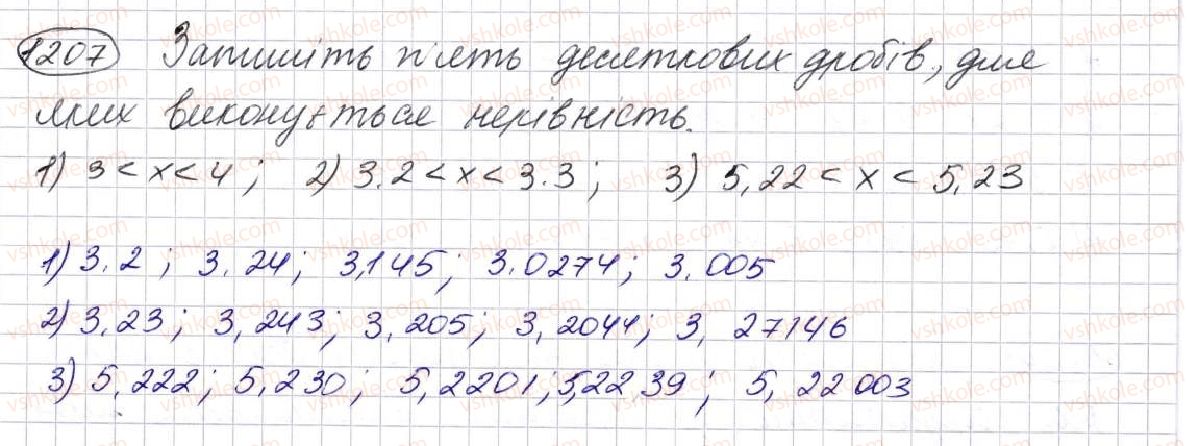 1207 Запишіть п'ять десяткових дробів, для
яких виконується нерівність.
1) 3 < x < 4; 2) 3.2 < x < 3.3; 3) 5,22 < x < 5,23
1) 3.2; 3.24; 3,145; 3.0274; 3.005
2) 3,23; 3,243; 3,205; 3,2044; 3,27146
3) 5,222; 5,230; 5,2201; 5,2239; 5,22003